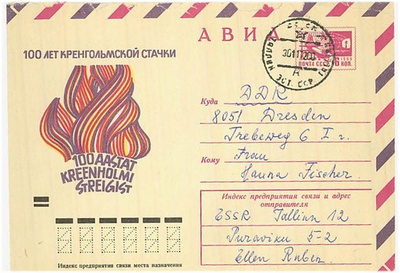 100 ЛЕТ КРЕНГОЛЬМСКОЙ СТАЧКИ
АВИА
ПОЧТА СССР
6 КОП.
ЭСТ. ССР
100 AASTAT
KREENHOLMI
STREIGIST
Куда DDR
8051 Dresden
Trebeweg 6 I r.
Кому Frau
Hanna Fischer
Индекс предприятия связи и адрес
отправителя
ESSR Tallinn 12
Puraviku 5-2
Ellen Ruber
Индекс предприятия связи места назначения